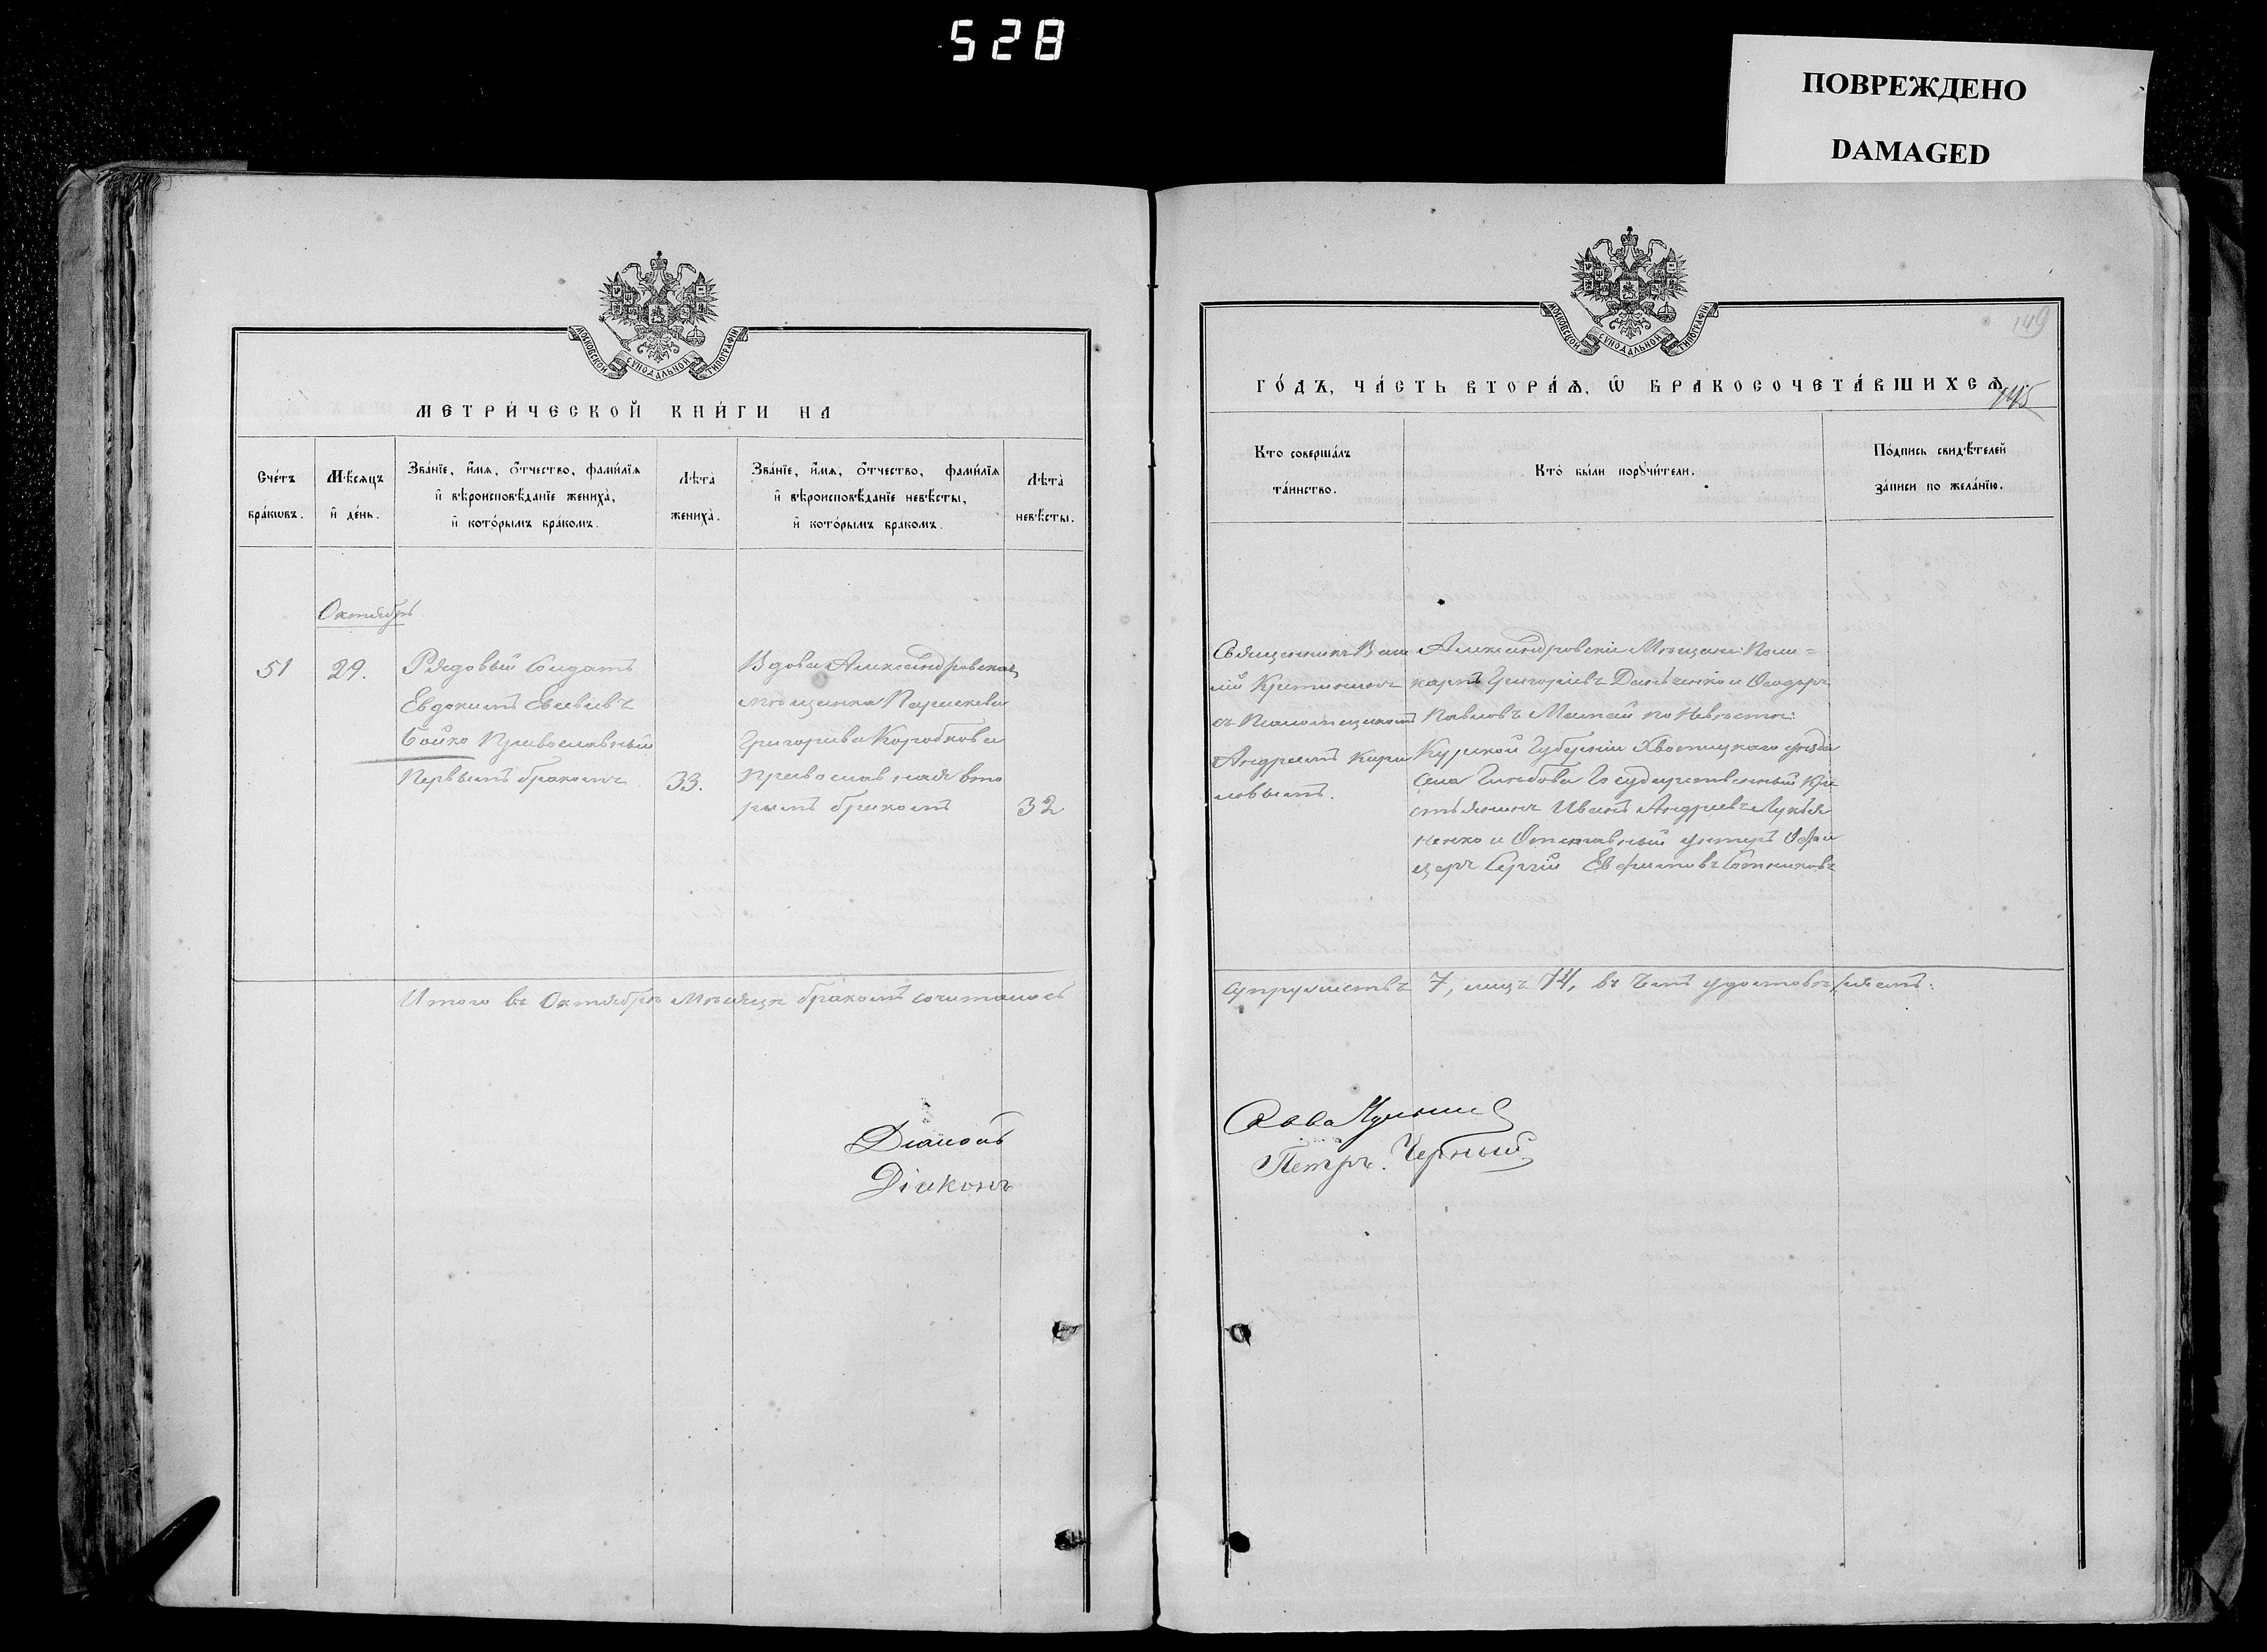 528
ПОВРЕЖДЕНО
DAMAGED
МОСКОВСКОЙ СѴНОДАЛЬНОЙ ТИПОГРАФІИ
МЕТРИ́ЧЕСКОЙ КНИ́ГИ НА
Сче́тъ бра́кѡвъ.
Мѣ́сяцъ и҆ де́нь.
Зва́нїе, и҆́мя, ѻ҆́тчество, фами́лїя
и҆ вѣроисповѣ́данїе жениха̀,
и҆ кото́рымъ бра́комъ.
Лѣта̀ жениха̀.
Зва́нїе, и҆́мя, ѻ҆́тчество, фами́лїя
и҆ вѣроисповѣ́данїе невѣ́сты,
и҆ кото́рымъ бра́комъ.
Лѣта̀ невѣ́сты.
Октябрь
51
29.
Рядовый Солдатъ
Евдокимъ Евсіевъ
Бойко Православный
Первымъ бракомъ
33.
Вдова Александровская
мѣщанка Параскева
Григорьева Коробкова
православная вто
рымъ бракомъ
32
Итого въ Октябрѣ Мѣсяцѣ бракомъ сочиталось
Діаконъ
Діаконъ
МОСКОВСКОЙ СѴНОДАЛЬНОЙ ТИПОГРАФІИ
149
ГО́ДЪ, ЧА́СТЬ ВТОРА́Ѧ, Ѡ҆ БРАКОСОЧЕТА́ВШИХСѦ.
145
Кто соверша́лъ
та́инство.
Кто̀ бы́ли порꙋчи́тели.
По́дпись свидѣ́телей
за́писи по жела́нїю.
Священникъ Васи
лій
съ
Андреемъ Кири
ловымъ.
Александровскіе Мѣщане: Поли=
карпъ Григоріевъ Данченко и Феодоръ
Павловъ по Невѣстѣ:
Курской Губерніи уезда
Села Глыбова Государственный Кре
стьянинъ Иванъ Андреевъ Лукья
ненко и Отставный унтеръ Офи
церъ Сергій Евфимовъ Сотниковъ
супружествъ 7, лицъ 14, въ чемъ удостовѣряемъ:
Савва
Петръ. Черный